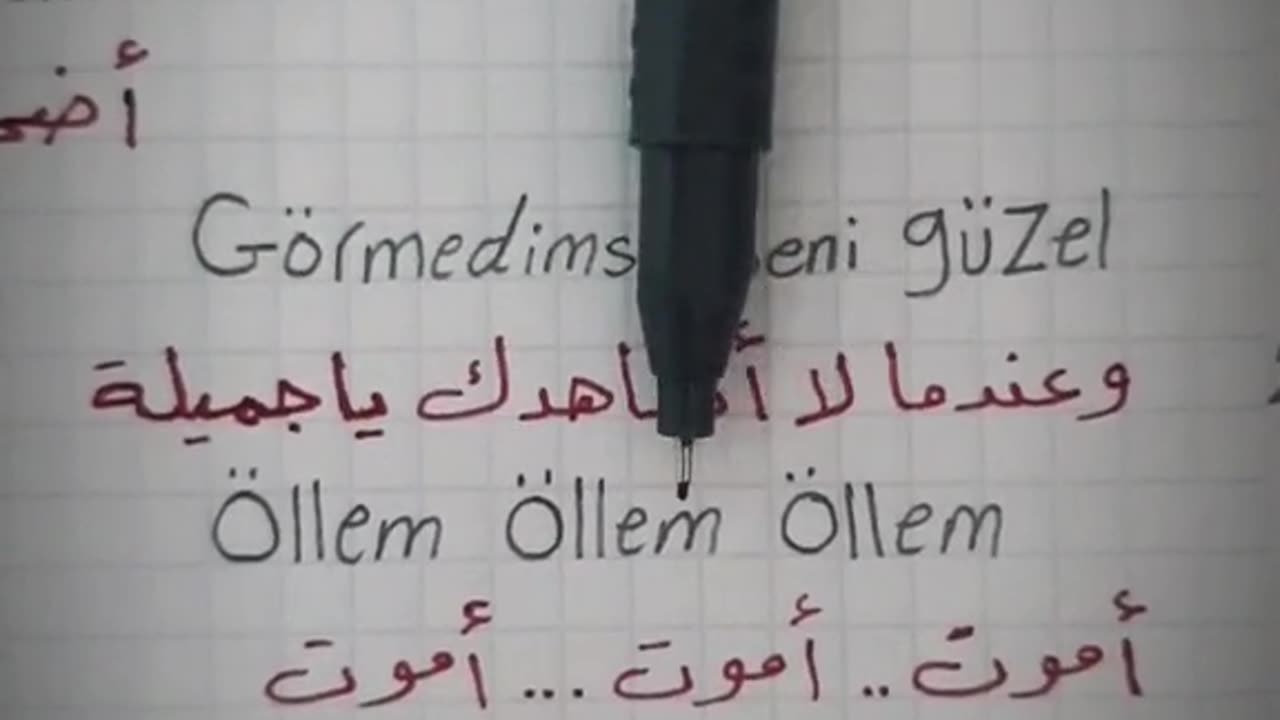 Görmedims eni güzel
وعندما لا أشاهدك ياجميلة
Öllem Öllem Öllem
أموت .. أموت ... أموت